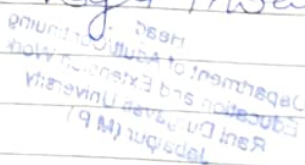 Head
Department of Adult Continuing
Education and Extension Work
Rani Durgavati University
Jabalpur (M.P.)